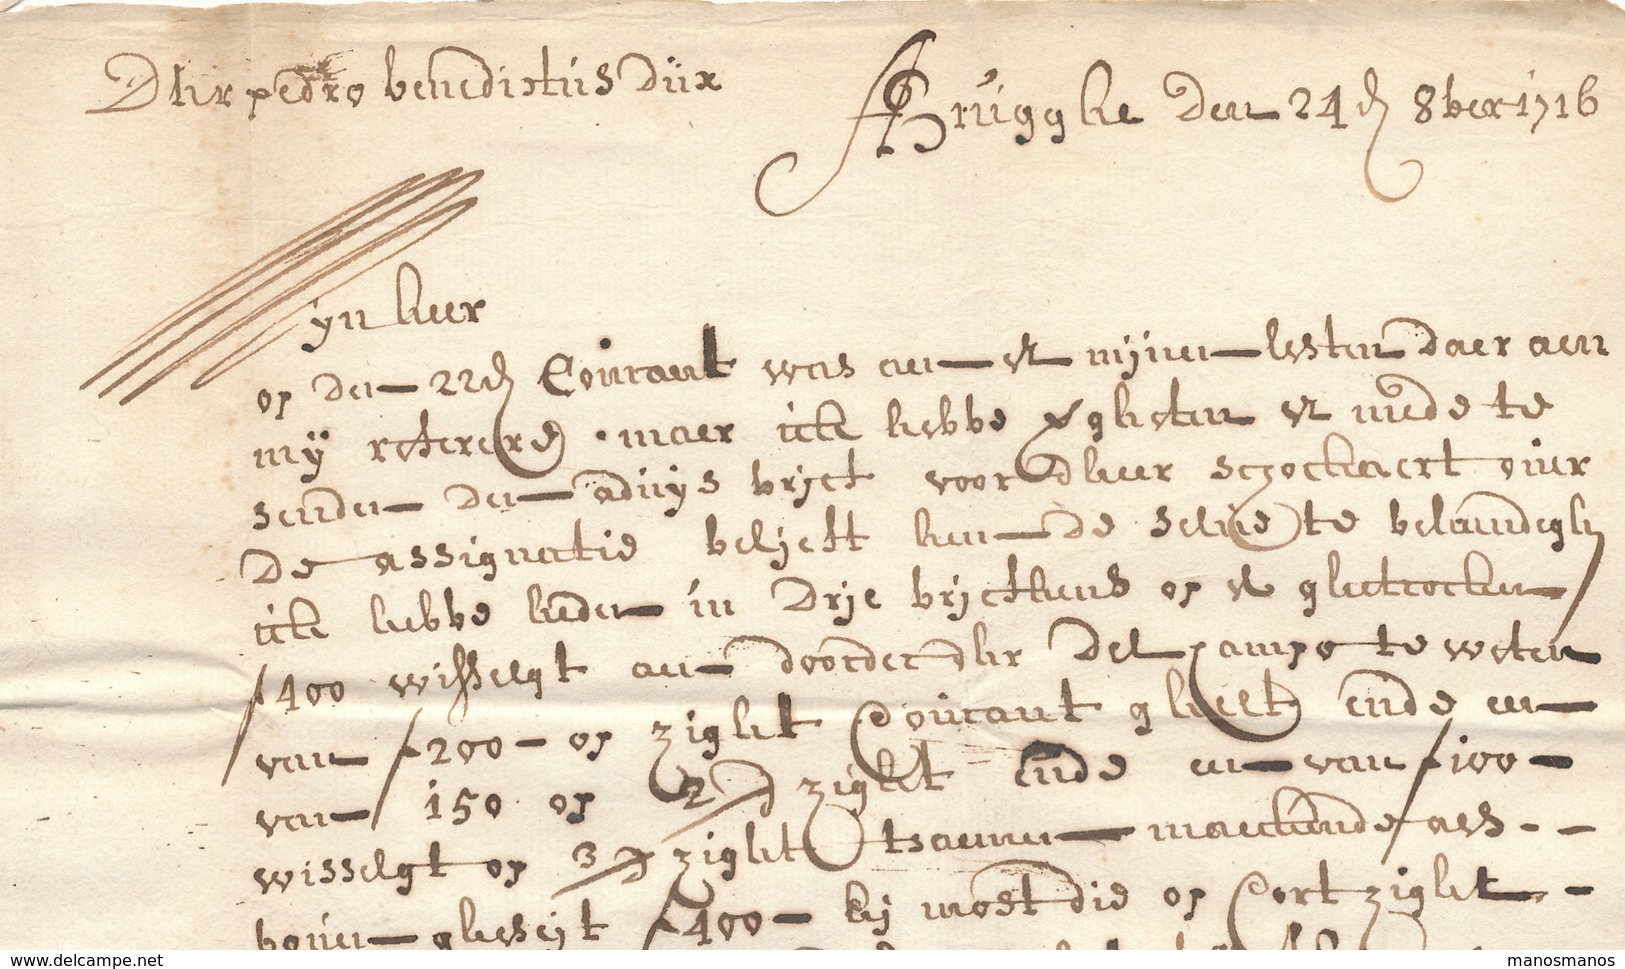 Dhr pedro benedictus Dux
Brugghe den 24 d 8ber 1716
yn heer
op den 22 d Courant was aen UE mynen lesten daer aen
my refererd maer ick hebbe vergheten UE mede te
senden den advys brief voor dheer sczockaert over
de assignatie beljeft hem de selve te behandeghen
ick hebbe heden in drije brijefkens op UE ghetrocken
f 400 wisselgt aen d'order dhr del campo te weten
van f 200 - op zight Courant ghelt ende een
van f 150 op 2/d zight ende een van f 100 -
wisselgt op 3/d zight tsaemen maeckende als - -
boven gheseijt f 400 - hij most die op Cort zight - -
www.delcampe.net
manosmanos